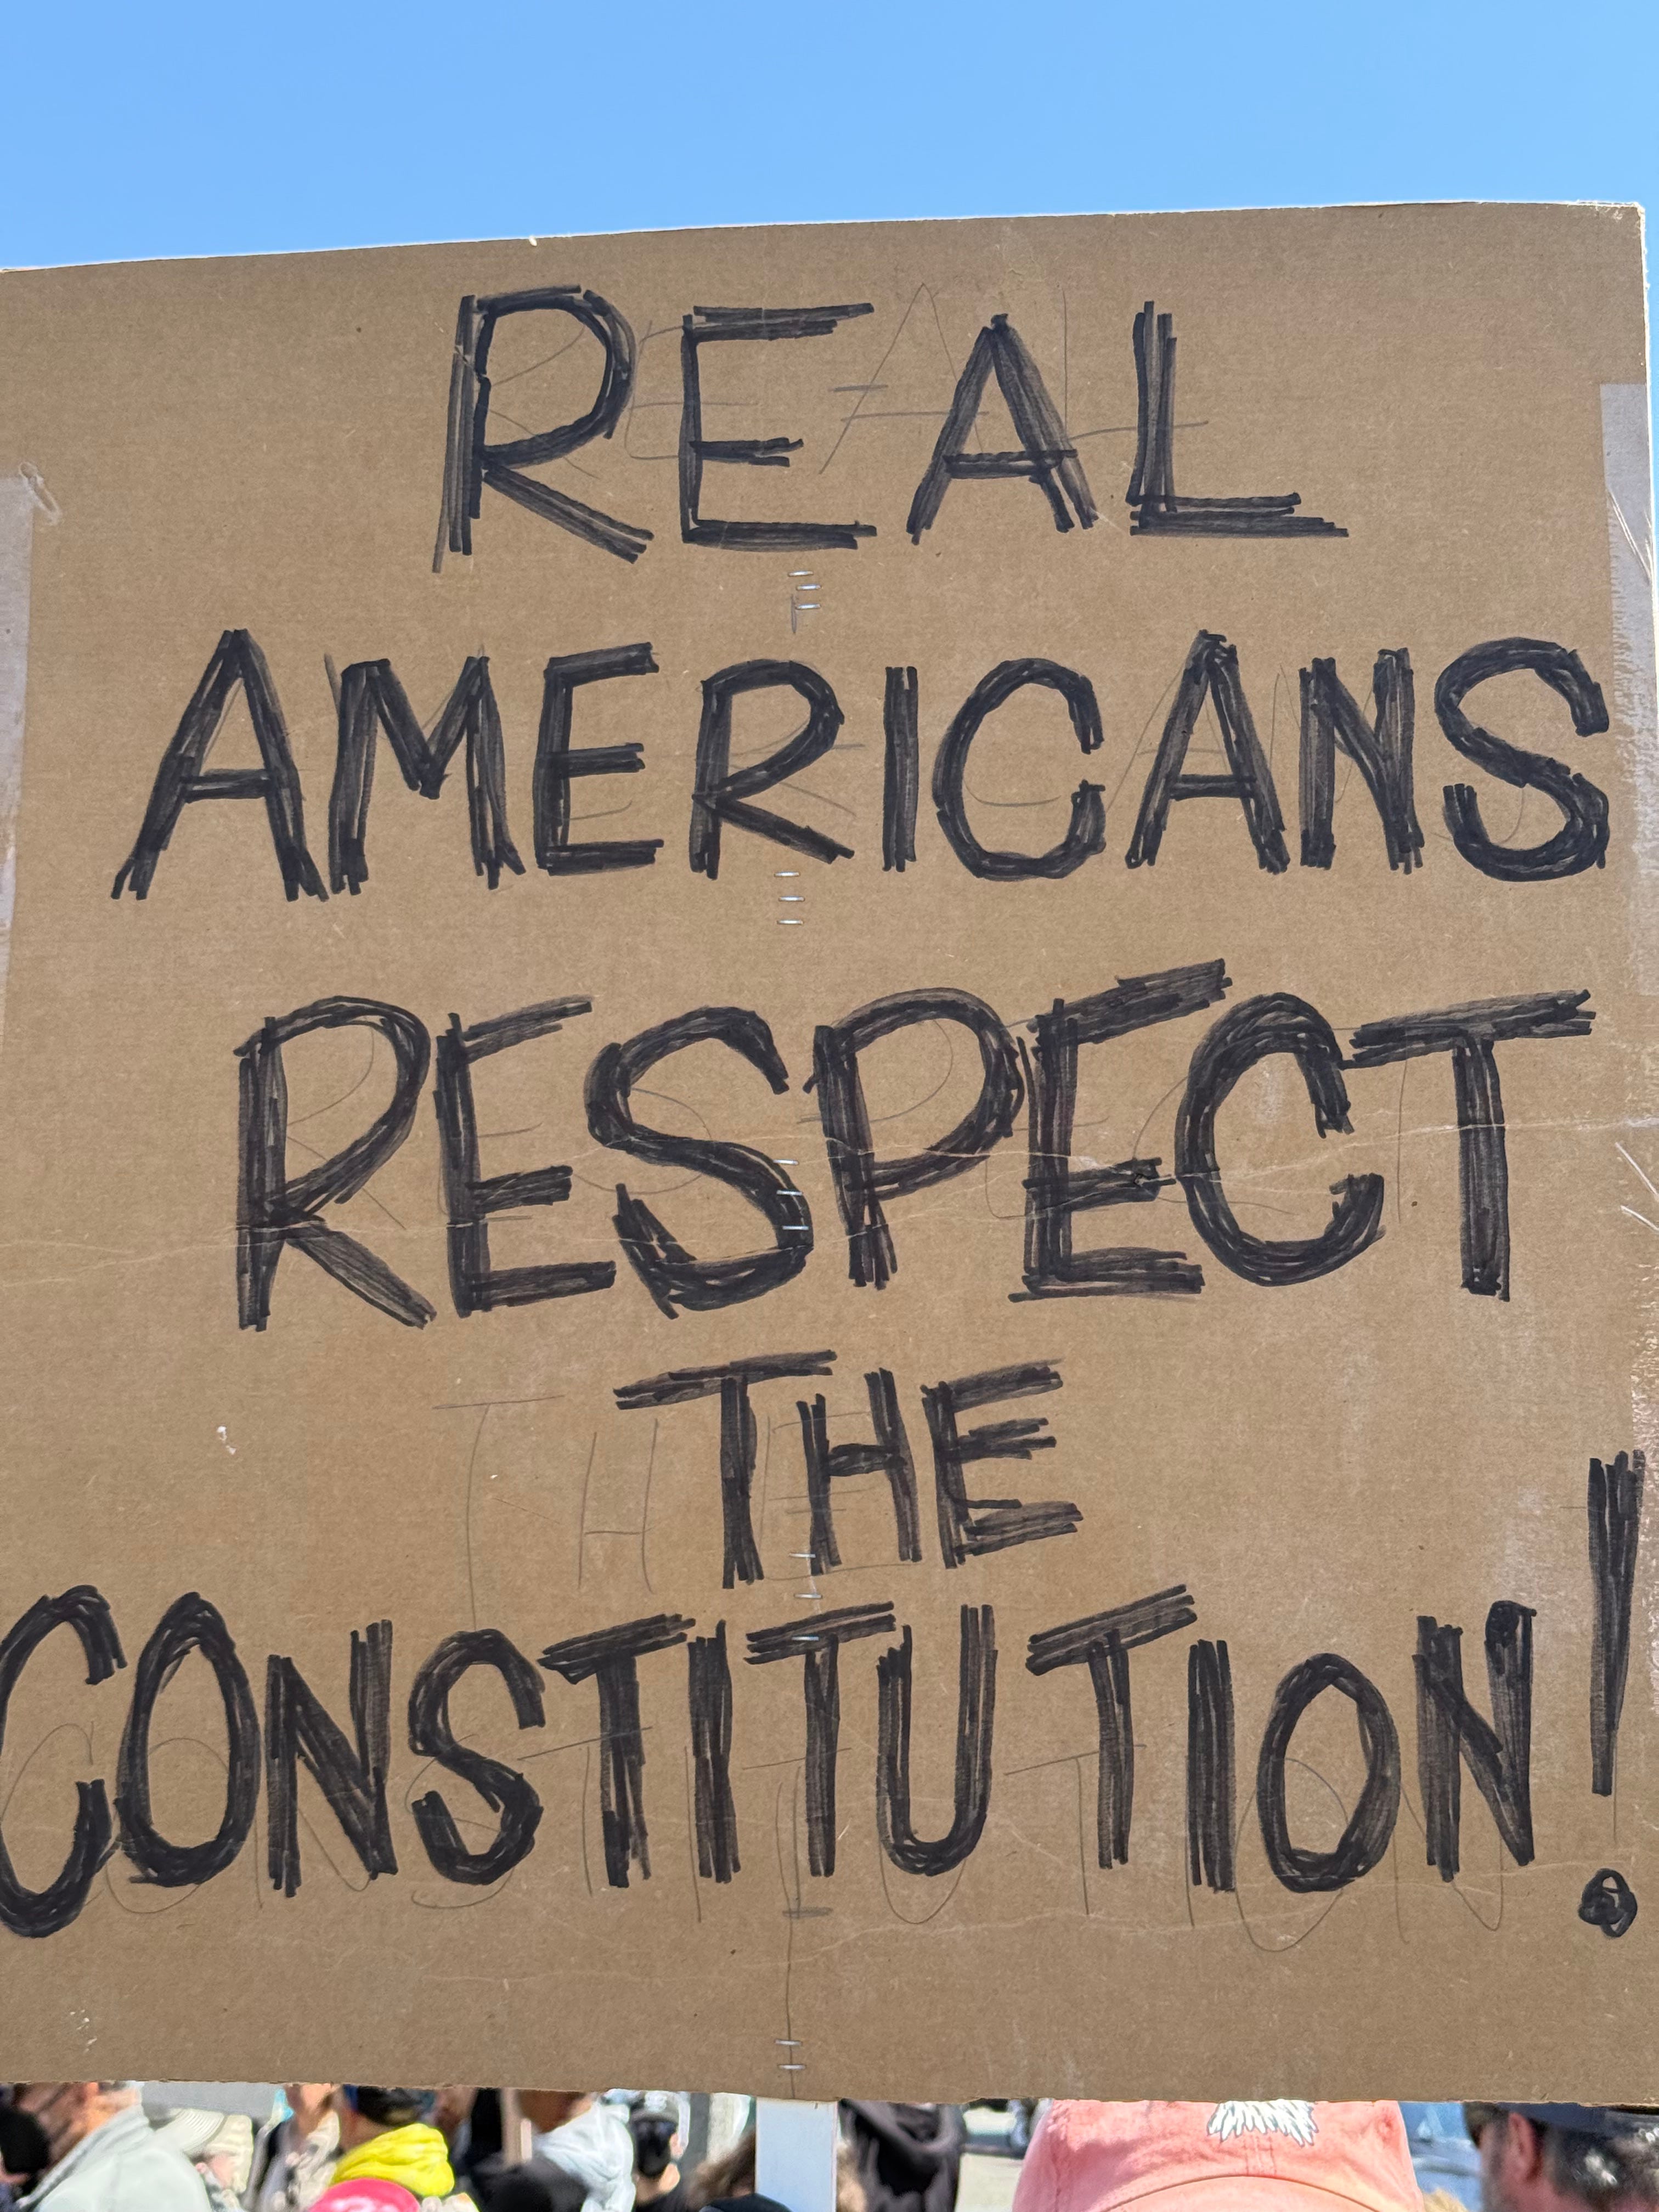 REAL
AMERICANS
RESPECT
THE
CONSTITUTION!